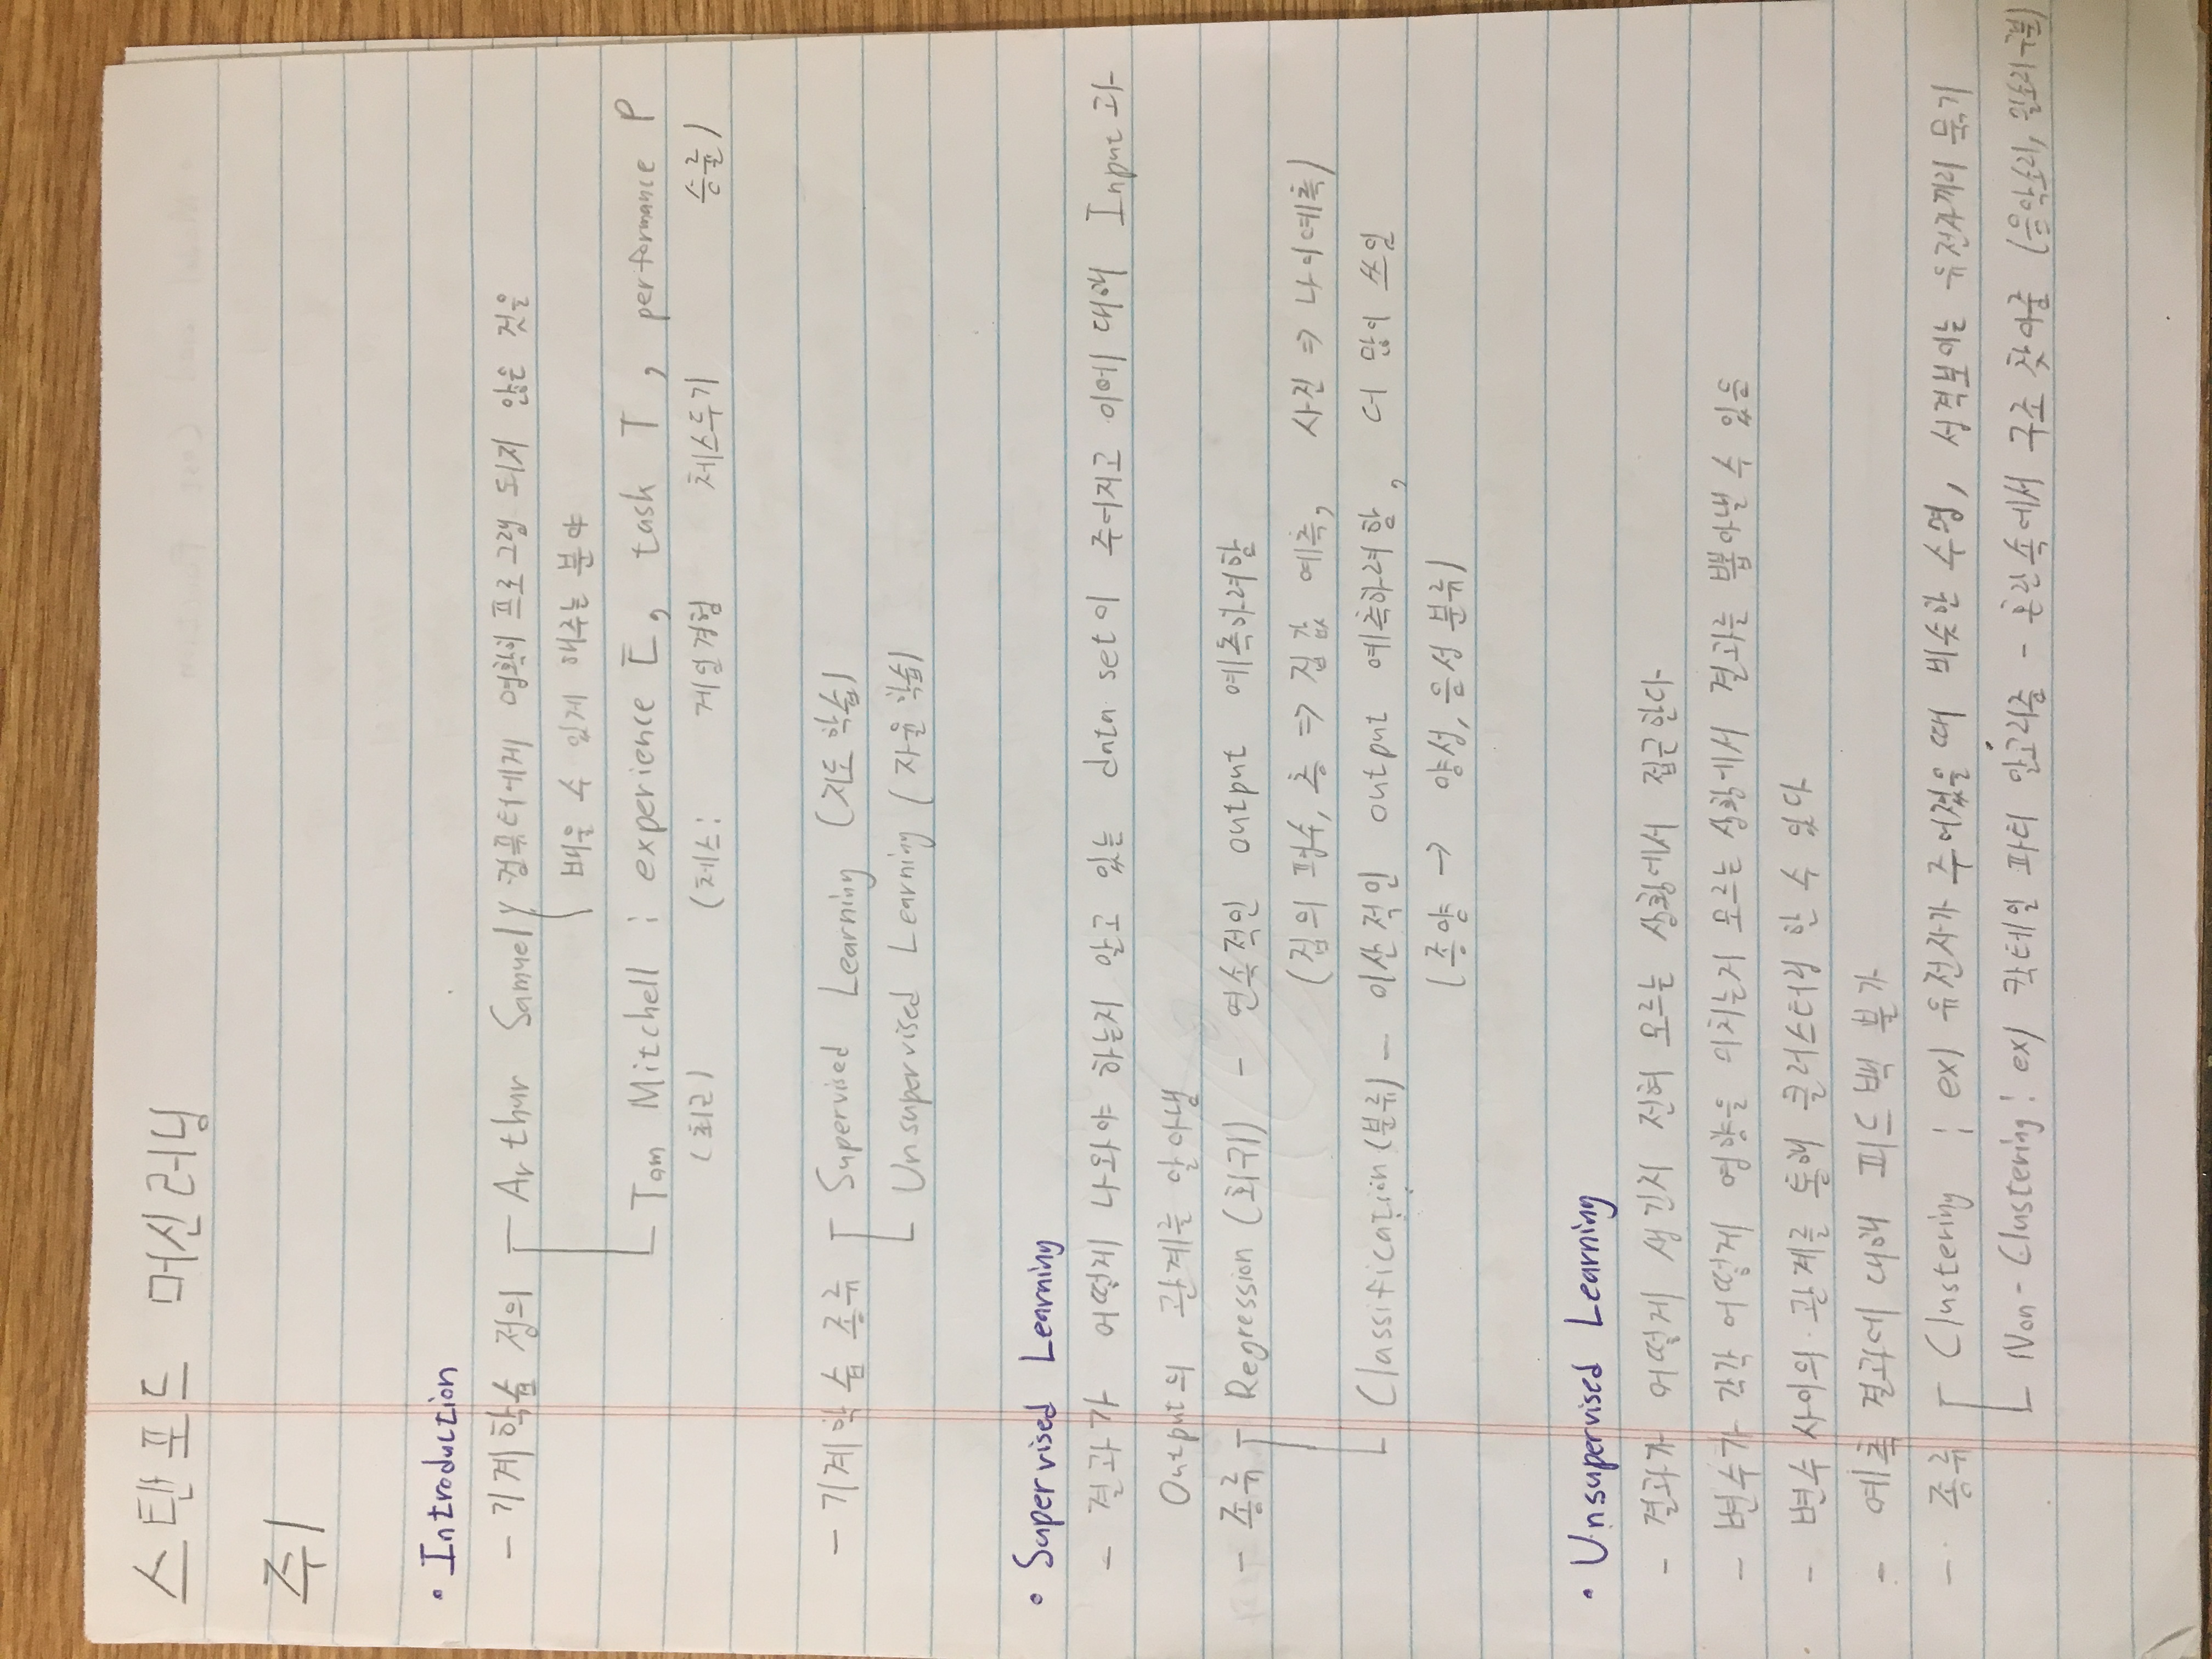 스탠포드 머신러닝
주1
• Introduction
- 기계학습 정의 Arthur Samuel : 컴퓨터에게 명확히 프로그램 되지 않은 것을
배울 수 있게 해주는 분야
Tom Mitchell : experience E, task T, performance P
(최근) (체스: 게임경험 체스두기 승률)
- 기계학습 종류 Supervised Learning (지도학습)
Unsupervised Learning (자율학습)
• Supervised Learning
- 결과가 어떻게 나와야 하는지 알고 있는 data set이 주어지고 이에 대해 Input과
Output의 관계를 알아냄
- 종류 Regression (회귀) - 연속적인 output 예측하려함
(집의 평수, 층 => 집값 예측, 사진 => 나이예측)
Classification (분류) - 이산적인 output 예측하려함, 더 많이 쓰임
(종양 → 양성, 음성 분류)
• Unsupervised Learning
- 결과가 어떻게 생긴지 전혀 모르는 상황에서 접근한다
- 변수가 각각 어떻게 영향을 미치는지 모르는 상황에서 결과를 뽑아낼 수 있음
- 변수 사이의 관계를 통해 클러스터링 할 수 있다
- 예측 결과에 대해 피드백 불가
- 종류 Clustering : ex) 유전자가 주어졌을 때 비슷한 수명, 성격보이는 유전자끼리 묶기
Non-Clustering : ex) 칵테일 파티 알고리즘 - 혼란속에서 구조 찾아줌 (음악소리, 말소리 구분)